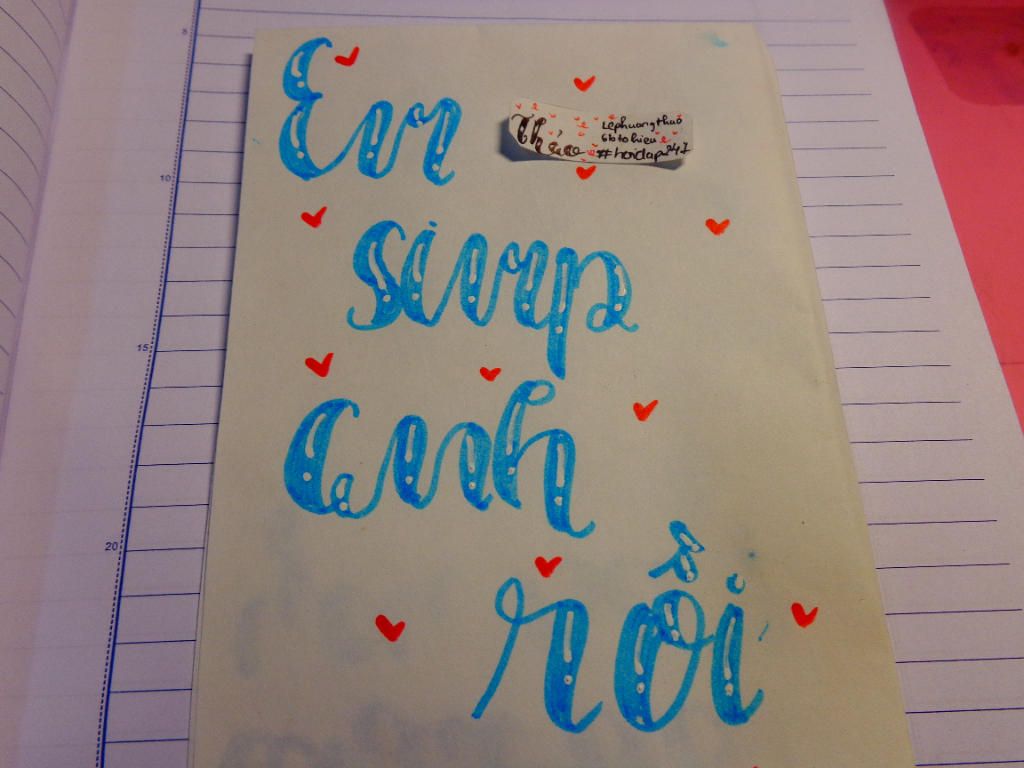 Em
Thảo
Lephuongthao
6b tohieu
#hoidap247
simp
anh
rồi
5
10
15
20